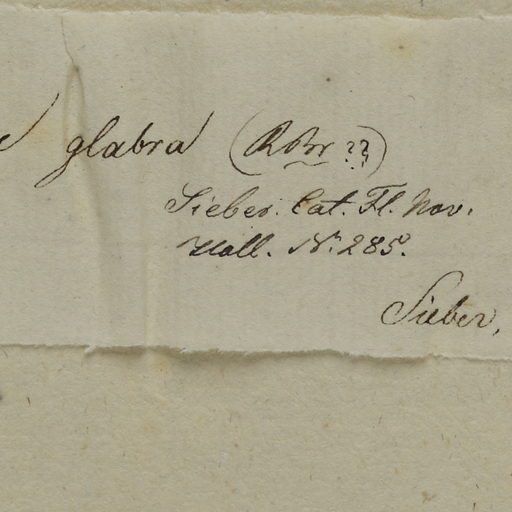 glabra (RBr ??)
Sieber. Cat. Fl. Nov.
Holl. N. 285.
Sieber,